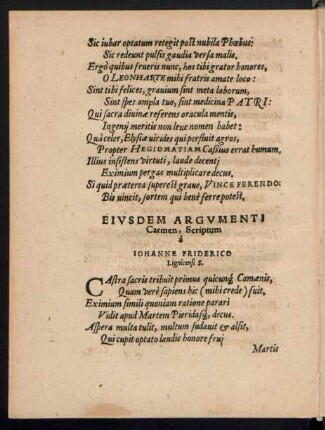 Sic iubar optatum retegit post nubila Phœbus:
Sic redeunt pulsis gaudia versa malis.
Ergò quibus frueris nunc, hos tibi grator honores,
O LEONHARTE mihi fratris amate loco:
Sint tibi felices, grauium sint meta laborum,
Sint spes ampla tuo, sint medicina PATRI:
Qui sacra diuinæ referens oracula mentis,
Ingenij meritis non leue nomen habet:
Quà celer, Elysiæ virides qui perfluit agros,
Propter HEGIOMATIAM Casius errat humum,
Illius insistens virtuti, laude decenti
Eximium pergas multiplicare decus,
Si quid præterea superest graue, VINCE FERENDO:
Bis vincit, sortem qui benè ferre potest,
EIVSDEM ARGVMENTI
Carmen, Scriptum
à
IOHANNE FRIDERICO
Lignicensi S.
CAstra sacris tribuit primus quicunq; Camœnis,
Quam verè sapiens hic (mihi crede) fuit.
Eximium simili quoniam ratione parari
Vidit apud Martem Pieridasq;, decus.
Aspera multa tulit, multum sudauit & alsit,
Qui cupit optato laudis honore frui
Martis